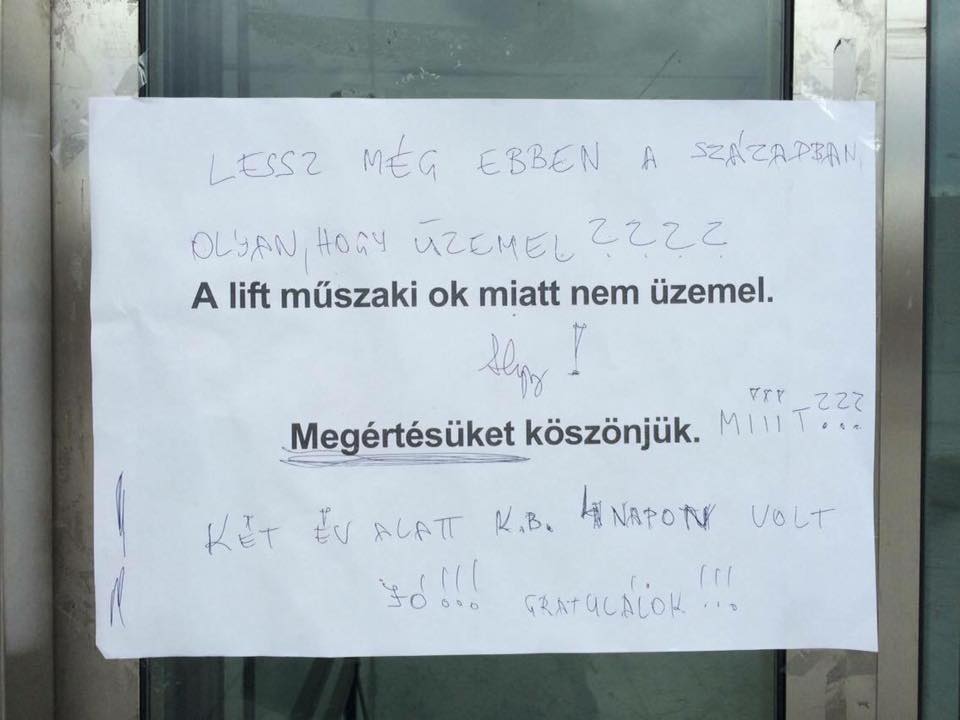 LESSZ MÉG EBBEN A SZÁZADBAN
OLYAN, HOGY ÜZEMEL ????
A lift műszaki ok miatt nem üzemel.
!
Megértésüket köszönjük.
MIIIT ???
KÉT ÉV ALATT K.B. 4 NAPON VOLT
JÓ!!! GRATULÁLOK!!!